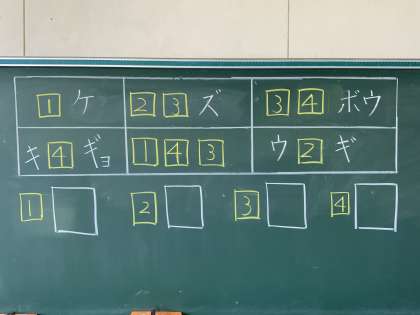 1ケ 23ズ 34ボウ
キ4ギョ 143 ウ2ギ
1 2 3 4